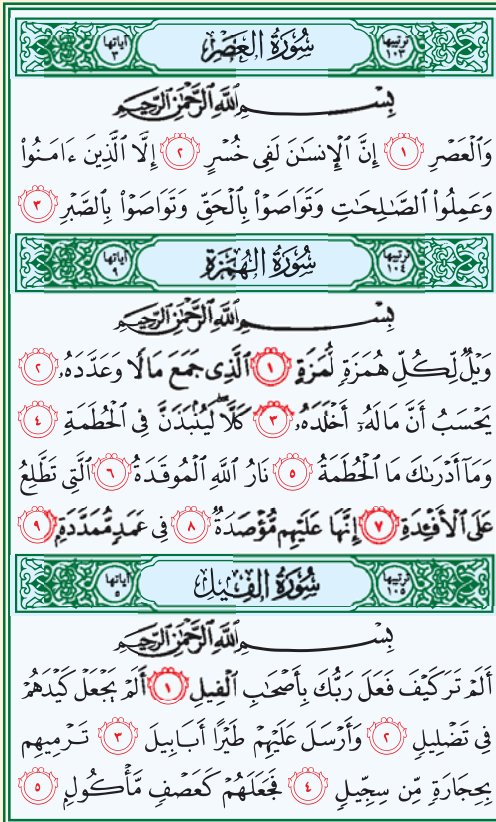 ترتيبها ١٠٣ سُورَةُ العَصْرِ آياتها ٣
بِسْمِ اللَّهِ الرَّحْمَٰنِ الرَّحِيمِ
وَٱلْعَصْرِ ١ إِنَّ ٱلْإِنسَٰنَ لَفِى خُسْرٍ ٢ إِلَّا ٱلَّذِينَ ءَامَنُوا۟
وَعَمِلُوا۟ ٱلصَّٰلِحَٰتِ وَتَوَاصَوْا۟ بِٱلْحَقِّ وَتَوَاصَوْا۟ بِٱلصَّبْرِ ٣
ترتيبها ١٠٤ سُورَةُ الهُمَزَةِ آياتها ٩
بِسْمِ اللَّهِ الرَّحْمَٰنِ الرَّحِيمِ
وَيْلٌ لِّكُلِّ هُمَزَةٍ لُّمَزَةٍ ١ ٱلَّذِى جَمَعَ مَالًا وَعَدَّدَهُۥ ٢
يَحْسَبُ أَنَّ مَالَهُۥٓ أَخْلَدَهُۥ ٣ كَلَّا ۖ لَيُنۢبَذَنَّ فِى ٱلْحُطَمَةِ ٤
وَمَآ أَدْرَىٰكَ مَا ٱلْحُطَمَةُ ٥ نَارُ ٱللَّهِ ٱلْمُوقَدَةُ ٦ ٱلَّتِى تَطَّلِعُ
عَلَى ٱلْأَفْـِٔدَةِ ٧ إِنَّهَا عَلَيْهِم مُّؤْصَدَةٌ ٨ فِى عَمَدٍ مُّمَدَّدَةٍۭ ٩
ترتيبها ١٠٥ سُورَةُ الفِيلِ آياتها ٥
بِسْمِ اللَّهِ الرَّحْمَٰنِ الرَّحِيمِ
أَلَمْ تَرَ كَيْفَ فَعَلَ رَبُّكَ بِأَصْحَٰبِ ٱلْفِيلِ ١ أَلَمْ يَجْعَلْ كَيْدَهُمْ
فِى تَضْلِيلٍ ٢ وَأَرْسَلَ عَلَيْهِمْ طَيْرًا أَبَابِيلَ ٣ تَرْمِيهِم
بِحِجَارَةٍ مِّن سِجِّيلٍ ٤ فَجَعَلَهُمْ كَعَصْفٍ مَّأْكُولٍۭ ٥